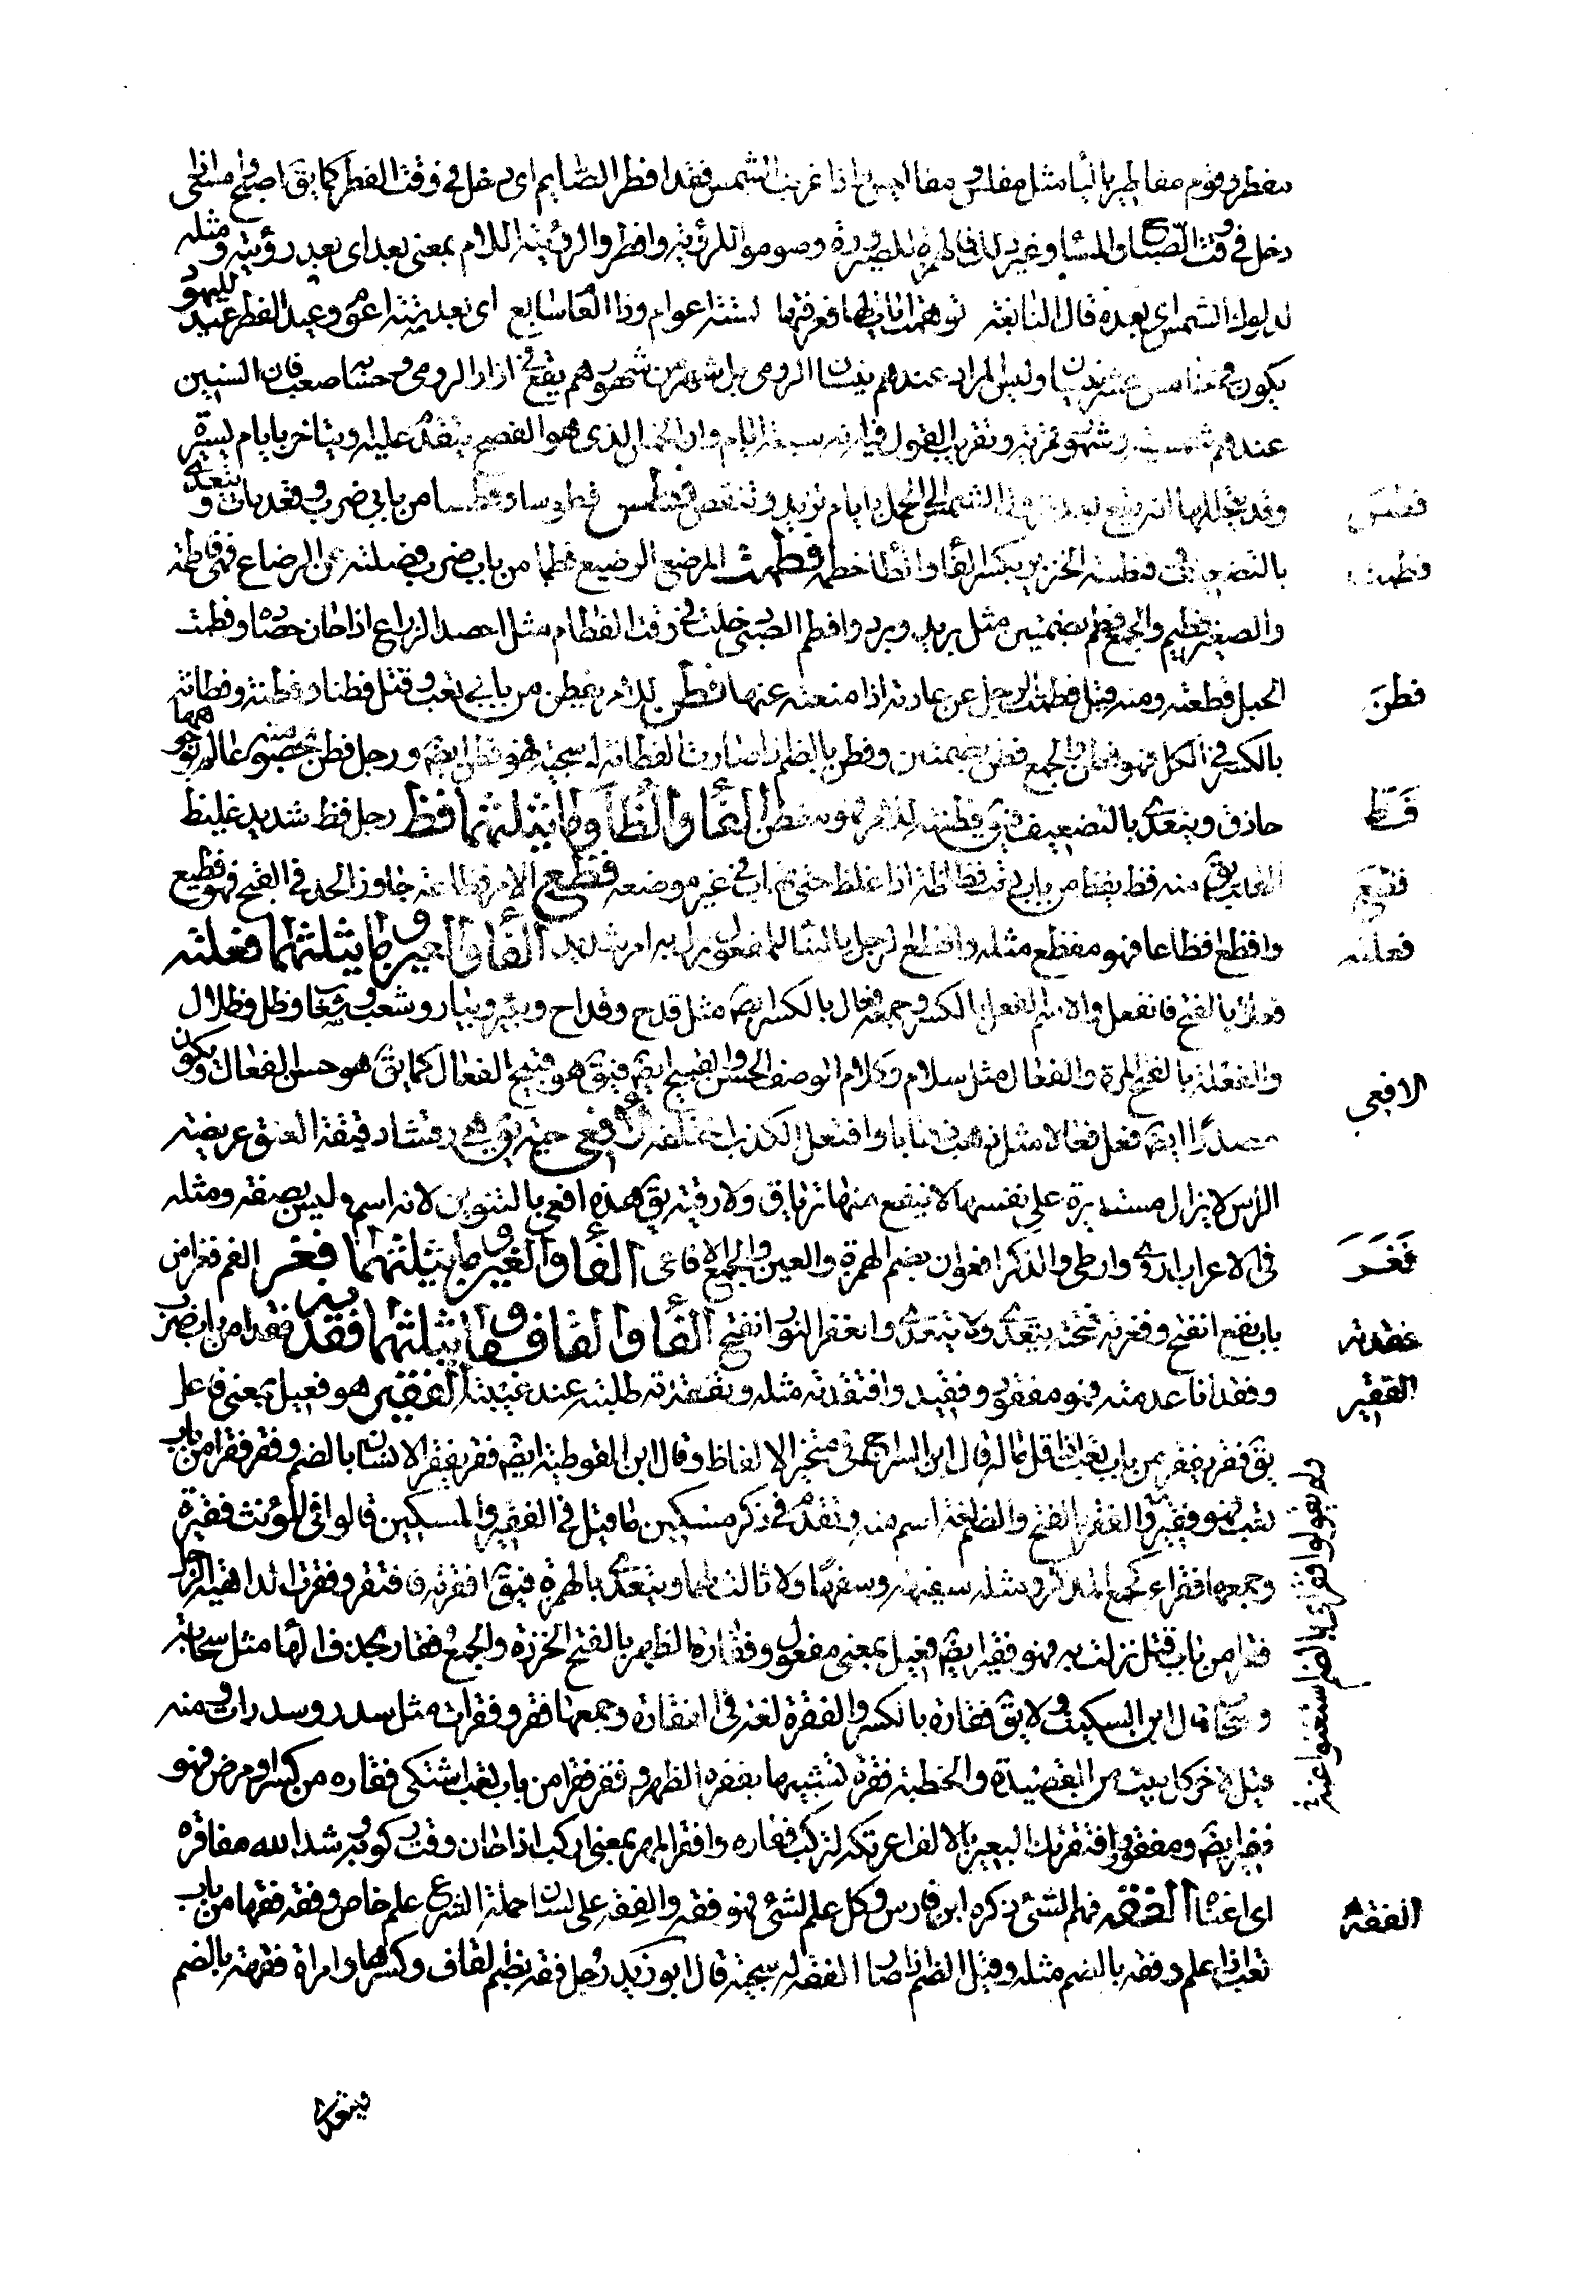 مفطر وقوم مفاطير بالياء مثل مفلس ومفاليس واذا غربت الشمس فقد افطر الصايم اى دخل في وقت الفطر كما يق اصبح وامسى اذا
دخل في وقت الصباح والمساء وغير ذلك فالهمزة للصيرورة وصوموا لرؤيته وافطروا لرؤيته اللام بمعنى بعد اى بعد رؤيته ومثله
لدلوك الشمس اى بعده قال النابغه توهمت ايات لها فعرفتها لستة اعوام وذا العام سابع اى بعد ستة اعوام وعيد الفطر عيد لليهود
يكون في خامس عشر نيسان وليس المراد عندهم نيسان الرومى بل شهر من شهورهم يقع في اذار الرومى وحسابه صعب فان السنين
عندهم شمسية وشهورهم قمرية وتقريب القول فيه انه سبعة ايام وان الخميس الذى هو الفصح يتقدم عليه ويتاخر بايام يسيرة
وقد الشمس الحمل بايام تزيد وتنقص فطس فطوسا وفطسا من بابي ضرب وقعد مات ويتعدى
بالتضعيف وفنطيسة الخنزير بكسر الفا والطا خطمه فطمت المرضع الرضيع فطما من باب ضرب فصلته عن الرضاع فهى فاطمة
والصغير فطيم والجمع فطم بضمتين مثل بريد وبرد وافطم الصبي دخل في وقت الفطام مثل احصد الزرع اذا حان حصاده وفطمت
الحبل قطعته ومنه قيل فطمت الرجل عن عادته اذا منعته عنها فطن للامر يفطن من بابي تعب وقتل فطنا وفطنة وفطانة
بالكسر في الكل فهو فطن والجمع فطن بضمتين وفطن بالضم اذا صارت الفطانة له سجية فهو فطن ايضا ورجل فطن بخصومته عالم بوجوهها
حاذق ويتعدى بالتضعيف فيق فطنته للامر الفا والظا وما يثلثهما فظ رجل فظ شديد غليظ
القلب يق منه فظ يفظ من باب تعب فظاظة اذا غلظ حتى يهاب في غير موضعه فظع الامر فظاعة جاوز الحد في القبح فهو فظيع
وافظع افظاعا فهو مفظع مثله وافظع الرجل بالبنا للمفعول نزل به امر شديد الفا والعين وما يثلثهما فعلته
فعلا بالفتح فانفعل والاسم الفعل بالكسر وجمعه فعال بالكسر ايضا مثل قدح وقداح وبئر وبئار وشعب وشعاب وظل وظلال
والفعلة بالفتح المرة والفعال مثل سلام وكلام الوصف الحسن والقبيح ايضا فيق هو قبيح الفعال كما يق هو حسن الفعال ويكون
مصدرا ايضا فعل فعالا مثل ذهب ذهابا وافتعل الكذب اختلقه الافعى حية يق هي رقشا دقيقة العنق عريضة
الراس لا يزال مستديرة على نفسها لا ينفع منها ترياق ولا رقية يق هذه افعى بالتنوين لانه اسم وليس بصفة ومثله
في الاعراب اروى وارطى والذكر افعوان بضم الهمزة والعين والجمع الافاعى الفا والغين وما يثلثهما فغر الفم فغرا من
باب نفع انفتح وفغرته فتحته يتعدى ولا يتعدى وانفغر النور انفتح الفا والقاف وما يثلثهما فقدته فقدا من باب ضرب
وفقدانا عدمته فهو مفقود وفقيد وافتقدته مثله وتفقدته طلبته عند غيبته الفقير هو فعيل بمعنى فاعل
يق فقر يفقر من باب تعب اذا قل ماله قال ابن السراج ولم الالفاظ وقال ابن القوطية ايضا فقر يفقر الانسان بالضم وفقر فقرا من باب
تعب فهو فقير والفقر بالفتح والضم لغة اسم منه وتقدم في ذكر مسكين ما قيل في الفقير والمسكين قالوا في المؤنث فقيرة
وجمعها فقراء كجمع المذكر ومثله سفيهة وسفها ولا ثالث لهما ويتعدى بالهمزة فيق افقرته فافتقر وفقرت الداهية الرجل
فقرا من باب قتل نزلت به فهو فقير ايضا فعيل بمعنى مفعول وفقارة الظهر بالفتح الخرزة والجمع فقار بحذف الهاء مثل سحابة
وسحاب قال ابن السكيت ولا يق فقارة بالكسر والفقرة لغة في الفقارة وجمعها فقر وفقرات مثل سدر وسدرات ومنه
قيل لاخر كل بيت من القصيدة والخطبة فقرة تشبيها بفقرة الظهر وفقر فقرا من باب تعب اشتكى فقاره من كسر او مرض فهو
فقير ايضا ومفقور وافقرتك البعير بالالف اعرتكه لتركب فقاره وافقر المهر بمعنى اركب اذا حان وقت ركوبه وسد الله مفاقره
اى اغناه الفقه فهم الشئ ذكره ابن فارس وكل علم لشئ فهو فقه والفقه على لسان حملة الشرع علم خاص وفقه فقها من باب
تعب اذا علم وفقه بالضم مثله وقيل الضم اذا صار الفقه له سجية قال ابو زيد رجل فقه بضم القاف وكسرها وامراة فقهة بالضم
فطس
فطمت
فطن
فظ
فظع
فعلته
الافعى
فغر
فقدته
الفقير
ولم يقولوا فقر بالضم استغنوا عنه
الفقه
ويتعدى